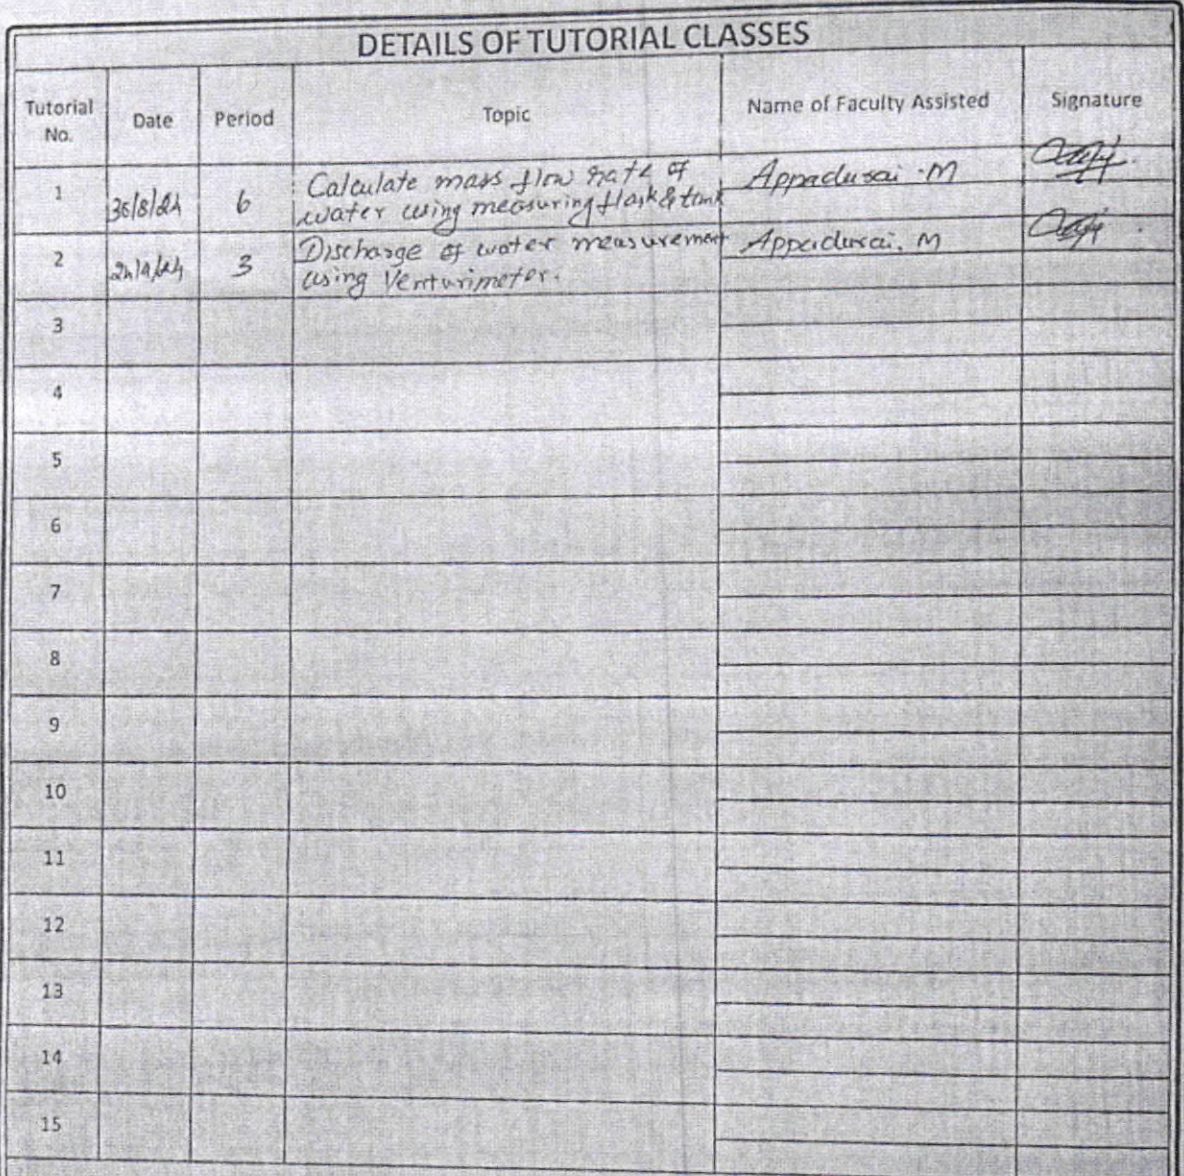 DETAILS OF TUTORIAL CLASSES
Tutorial No. Date Period Topic Name of Faculty Assisted Signature
1 30/8/24 6 Calculate mass flow rate of Appadurai .M
water using measuring flask & tank
2 3 Discharge of water measurement Appadurai. M
using Venturimeter.
3
4
5
6
7
8
9
10
11
12
13
14
15